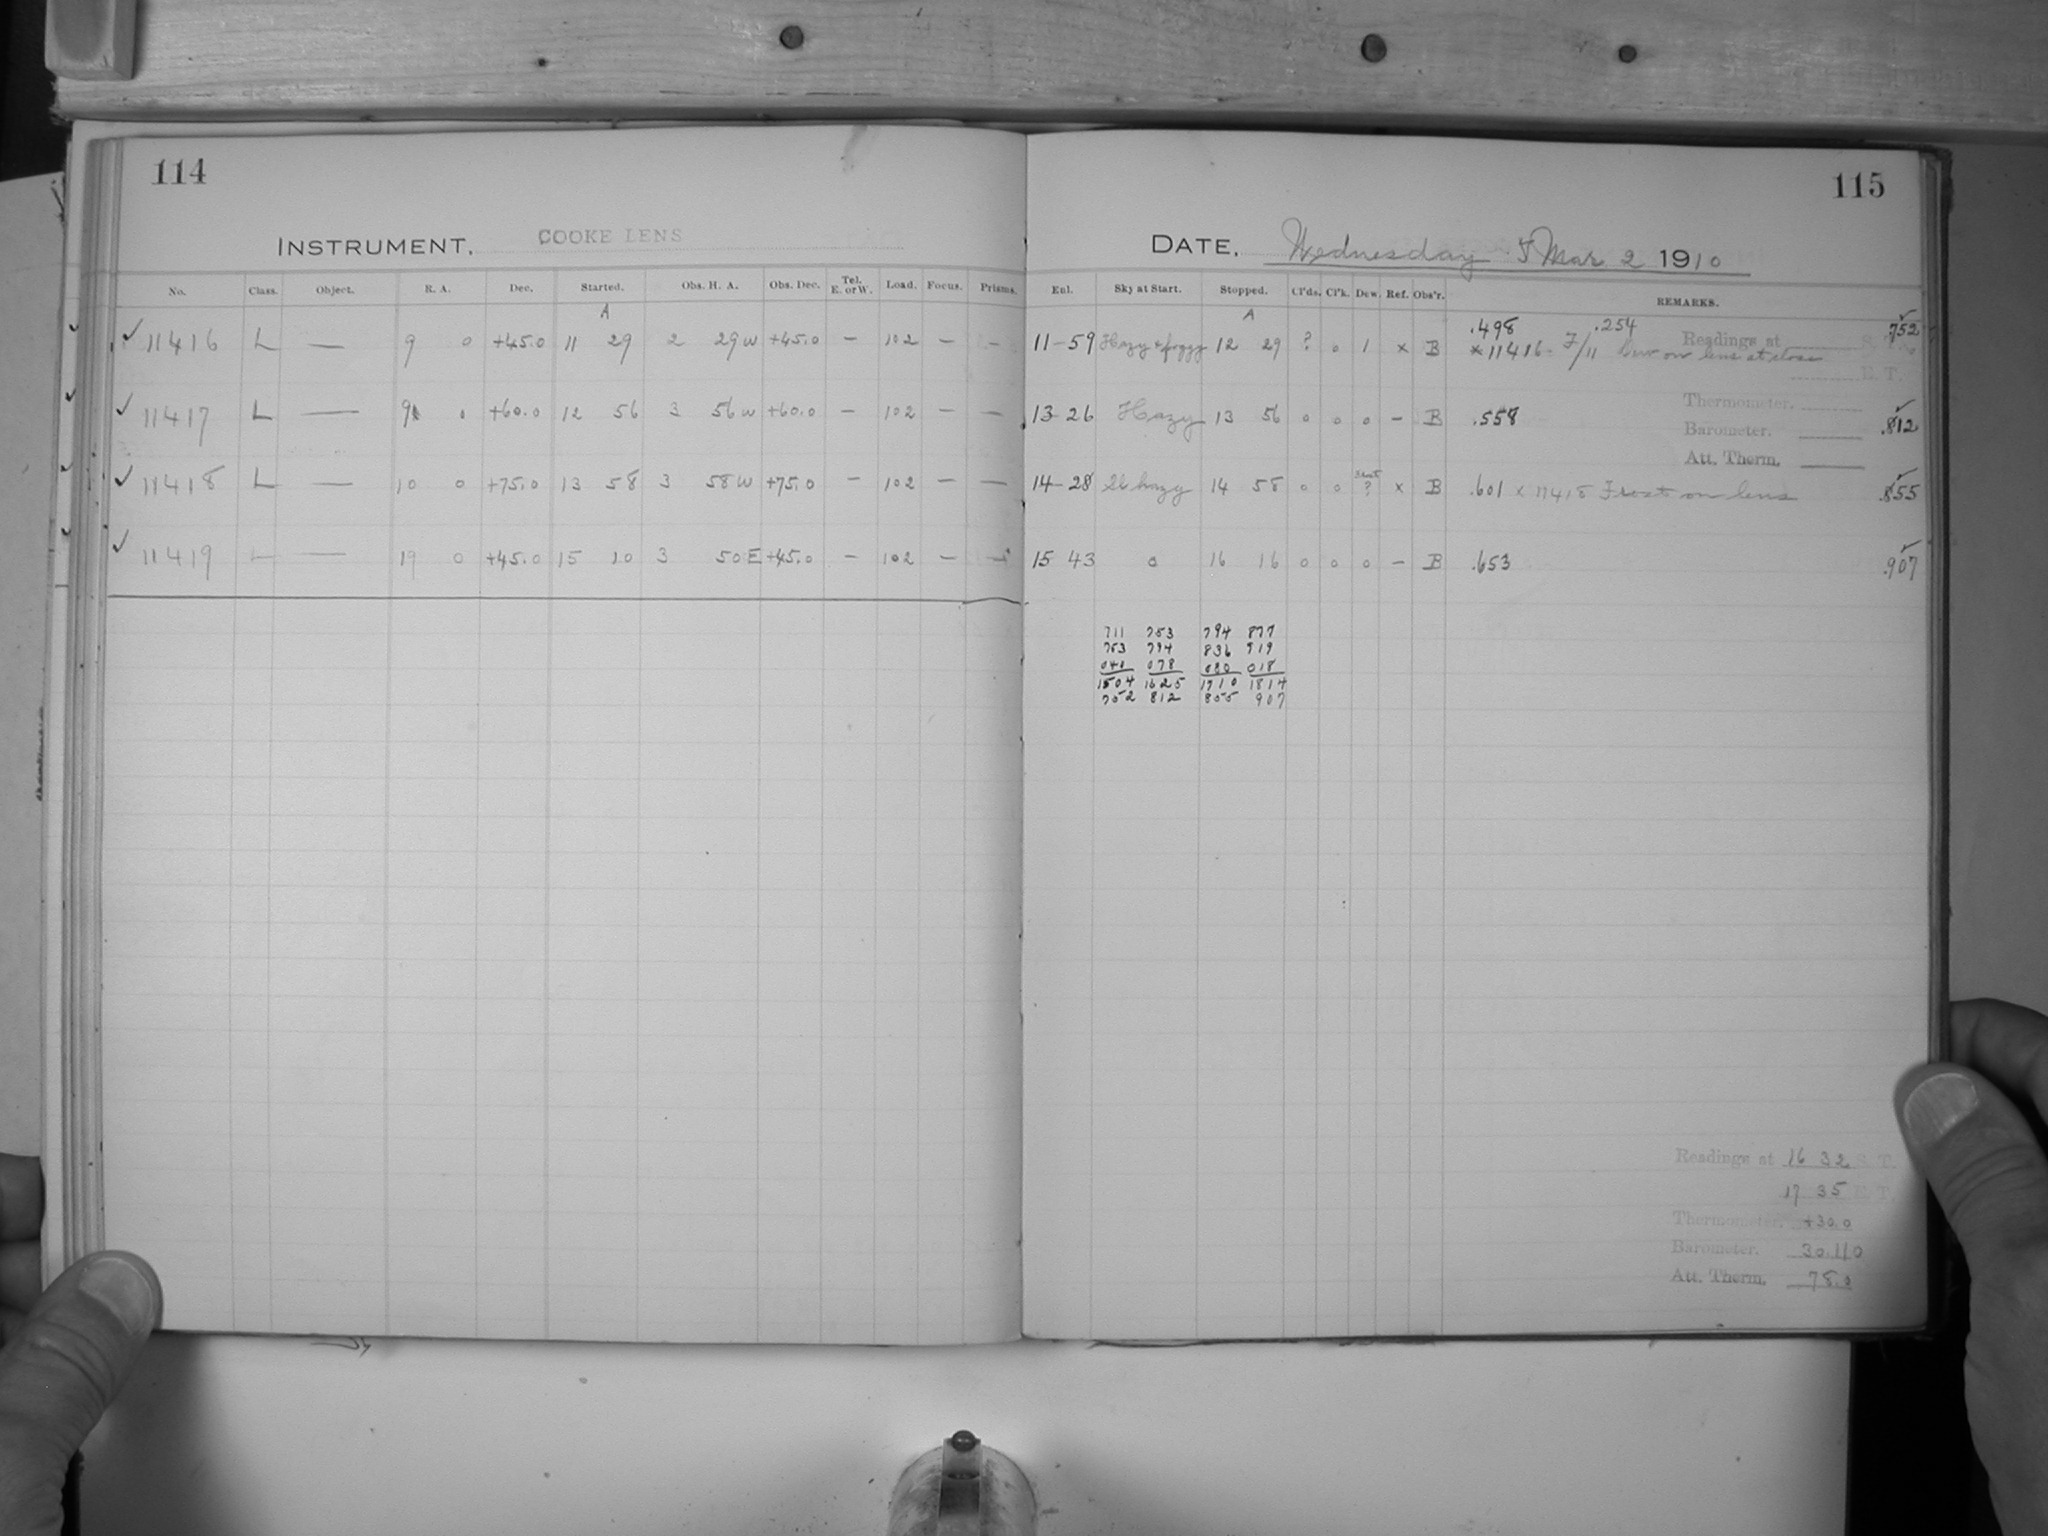 114
INSTRUMENT, COOKE LENS
No. Class. Object. R. A. Dec. Started. Obs. H. A. Obs. Dec. Tel. E. or W. Load. Focus. Prisms.
A
✓ 11416 L — 9 0 +45.0 11 29 2 29 W +45.0 — 102 — —
✓ 11417 L — 9 0 +60.0 12 56 3 56 W +60.0 — 102 — —
✓ 11418 L — 10 0 +75.0 13 58 3 58 W +75.0 — 102 — —
✓ 11419 L — 19 0 +45.0 15 10 3 50 E +45.0 — 102 — —
115
DATE, Wednesday Mar 2 1910
Enl. Sky at Start. Stopped. Cl'ds. Cl'k. Dew. Ref. Obs'r. REMARKS.
A
11-59 Hazy & foggy 12 29 ? 0 1 × B .498 .254 Readings at S. T. .752
× 11416 = F/11 Dew on lens at close
E. T.
Thermometer.
13-26 Hazy 13 56 0 0 0 — B .558 .812
Barometer.
Att. Therm.
14-28 Sl. hazy 14 58 0 0 ? × B .601 × 11418 Frost on lens .855
15 43 0 16 16 0 0 0 — B .653 .907
711 753 794 877
753 794 836 919
040 078 080 018
1504 1625 1710 1814
752 812 855 907
Readings at 16 32 S. T.
17 35 E. T.
Thermometer. +30.0
Barometer. 30.110
Att. Therm. 78.0